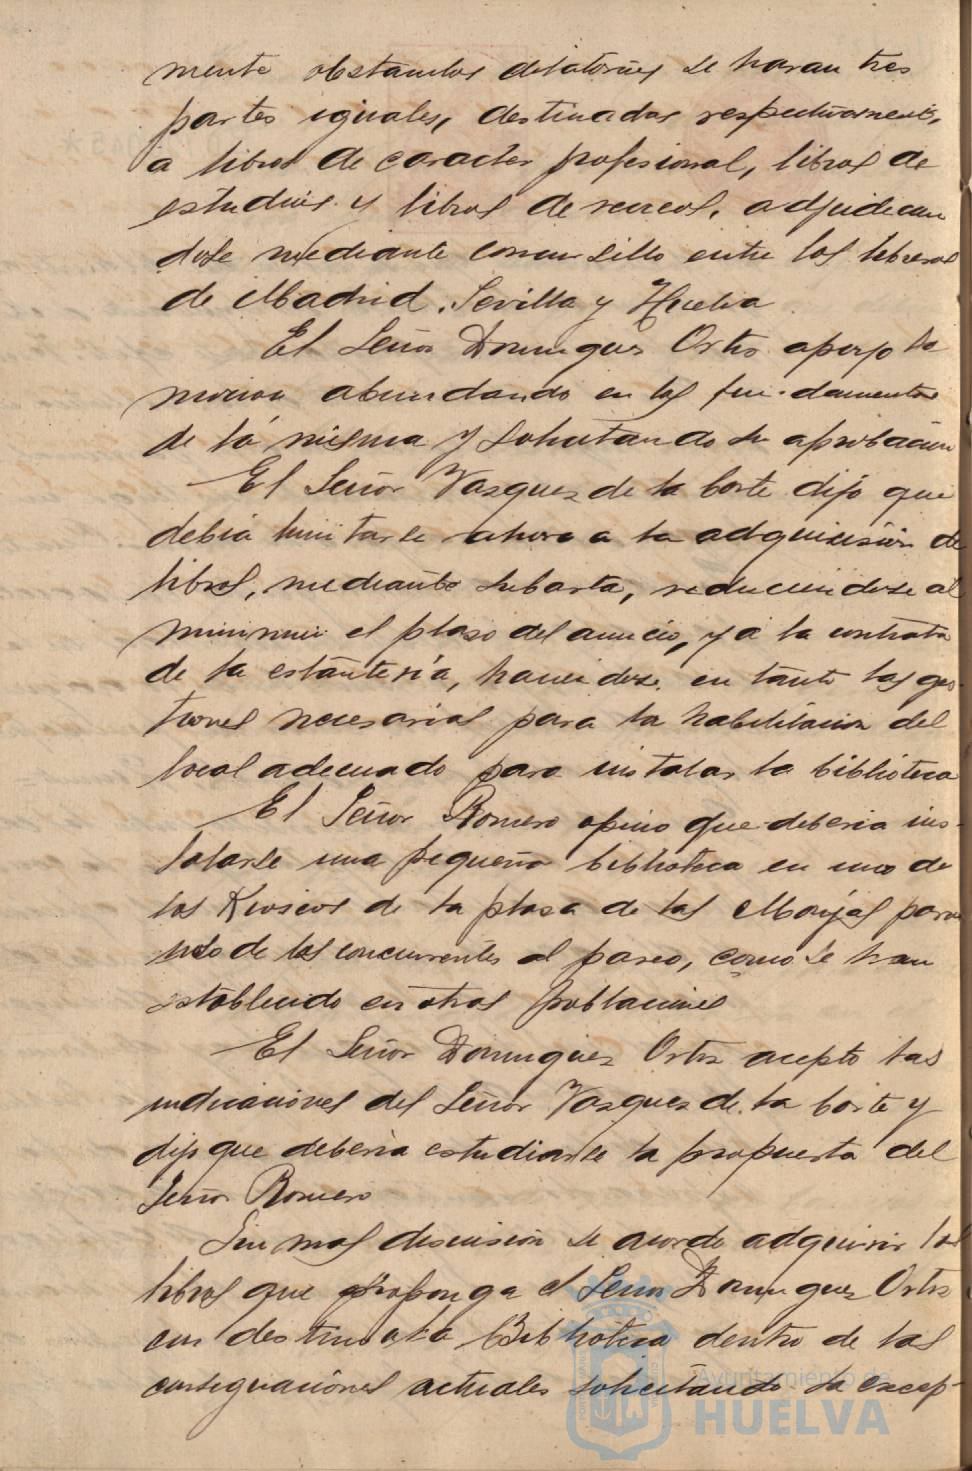 mente obstaculos dilatorios se haran tres
partes iguales, destinadas respectivamente,
a libros de caracter profesional, libros de
estudios y libros de recreos, adjudican
dose mediante concursillo entre los libreros
de Madrid, Sevilla y Huelva
El Señor Dominguez Ortiz apoyo la
mocion abundando en los fundamentos
de la misma y solicitando su aprobacion
El Señor Vazquez de la Corte dijo que
debia limitarse ahora a la adquisicion de
libros, mediante subasta, reduciendose al
minimun el plazo del anuncio, y á la contrata
de la estanteria, haciendose en tanto las ges-
tiones necesarias para la habilitacion del
local adecuado para instalar la biblioteca
El Señor Romero opino que deberia ins-
talarse una pequeña biblioteca en uno de
los Kioscos de la plaza de las Monjas para
uso de los concurrentes al paseo, como se han
establecido en otras poblaciones
El Señor Dominguez Ortiz acepto las
indicaciones del Señor Vazquez de la Corte y
dijo que deberia estudiarse la propuesta del
Señor Romero
Sin mas discusion se acordo adquirir los
libros que proponga el Señor Dominguez Ortiz
con destino a la Biblioteca dentro de las
consignaciones actuales solicitando la excep-
Ayuntamiento de
HUELVA